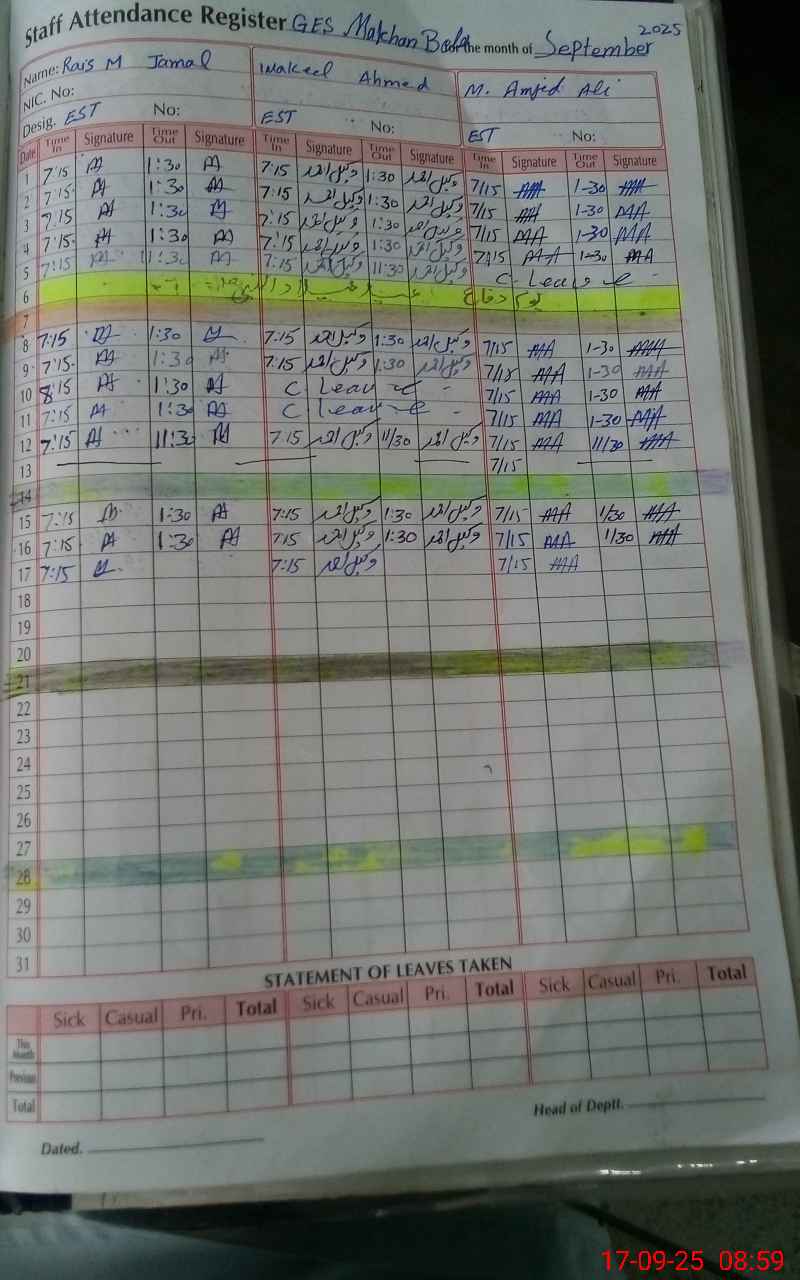 Staff Attendance Register GES Makhan Bela for the month of September 2025
Name: Rais M Jamal Wakeel Ahmed M. Amjed Ali
NIC. No:
Desig. EST No: EST No: EST No:
Date Time In Signature Time Out Signature Time In Signature Time Out Signature Time In Signature Time Out Signature
1 7:15 1:30 7:15 وکیل احمد 1:30 وکیل احمد 7/15 MA 1-30 MA
2 7:15 1:30 7:15 وکیل احمد 1:30 وکیل احمد 7/15 MA 1-30 MA
3 7:15 1:30 7:15 وکیل احمد 1:30 وکیل احمد 7/15 MA 1-30 MA
4 7:15 1:30 7:15 وکیل احمد 1:30 وکیل احمد 7/15 MA 1-30 MA
5 7:15 11:30 7:15 وکیل احمد 11:30 وکیل احمد C-Leave
6 یوم دفاع عید میلاد النبی
7
8 7:15 1:30 7:15 وکیل احمد 1:30 وکیل احمد 7/15 MA 1-30 MA
9 7:15 1:30 7:15 وکیل احمد 1:30 وکیل احمد 7/15 MA 1-30 MA
10 8:15 1:30 C Leave 7/15 MA 1-30 MA
11 7:15 1:30 C Leave 7/15 MA 1-30 MA
12 7:15 11:30 7:15 وکیل احمد 11/30 وکیل احمد 7/15 MA 11/30 MA
13 7/15
14
15 7:15 1:30 7:15 وکیل احمد 1:30 وکیل احمد 7/15 MA 1/30 MA
16 7:15 1:30 7:15 وکیل احمد 1:30 وکیل احمد 7/15 MA 1/30 MA
17 7:15 7:15 وکیل احمد 7/15 MA
18
19
20
21
22
23
24
25
26
27
28
29
30
31
STATEMENT OF LEAVES TAKEN
Sick Casual Pri. Total Sick Casual Pri. Total Sick Casual Pri. Total
This Month
Previous
Total
Head of Deptt.
Dated.
17-09-25 08:59